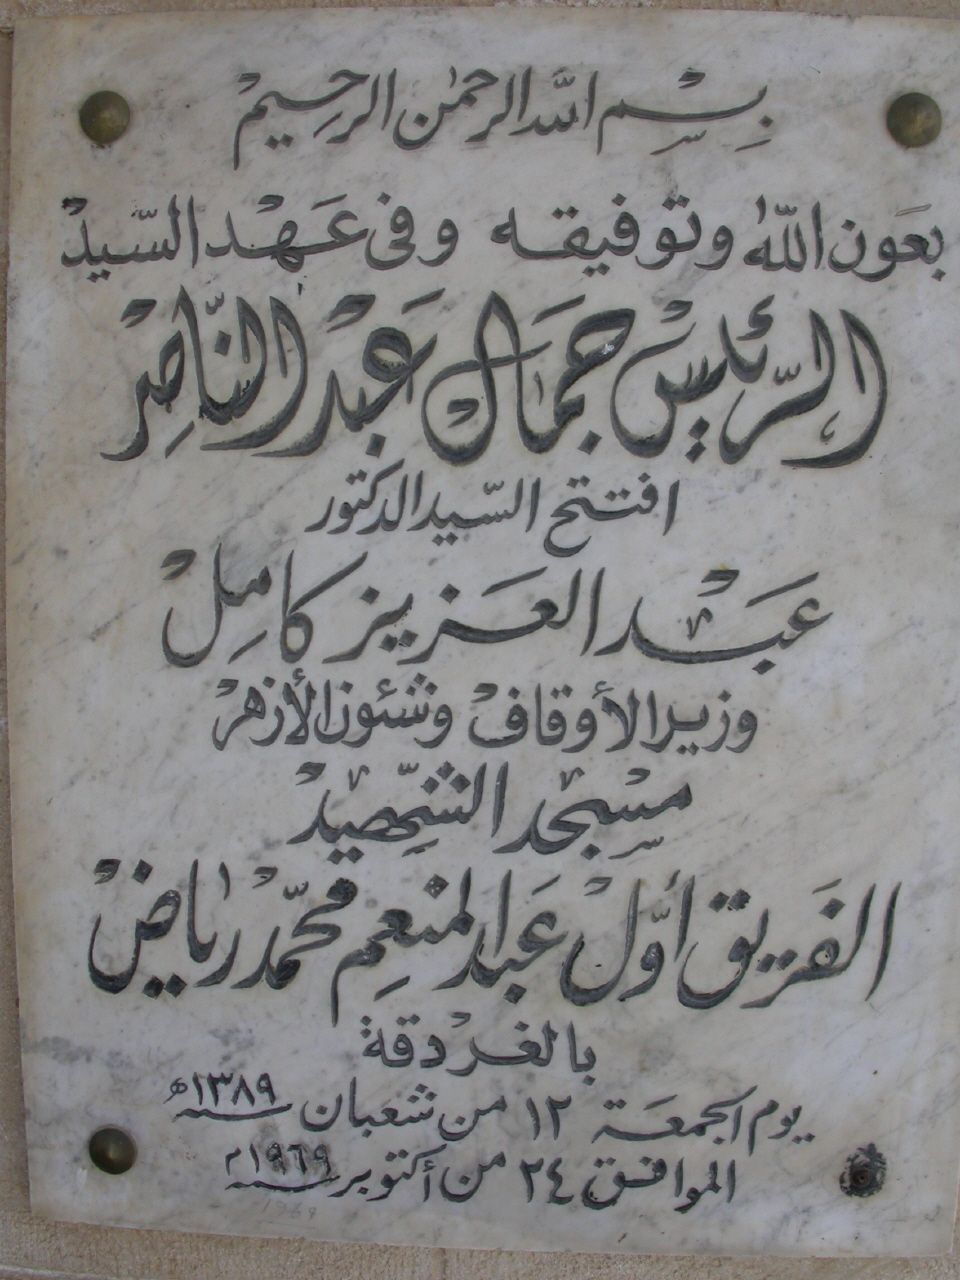 بسم الله الرحمن الرحيم
بعون الله وتوفيقه وفى عهد السيد
الرئيس جمال عبد الناصر
افتتح السيد الدكتور
عبد العزيز كامل
وزير الأوقاف وشئون الأزهر
مسجد الشهيد
الفريق أول عبد المنعم محمد رياض
بالغردقة
يوم الجمعة ١٢ من شعبان سنة ١٣٨٩ه
الموافق ٢٤ من أكتوبر سنة ١٩٦٩م